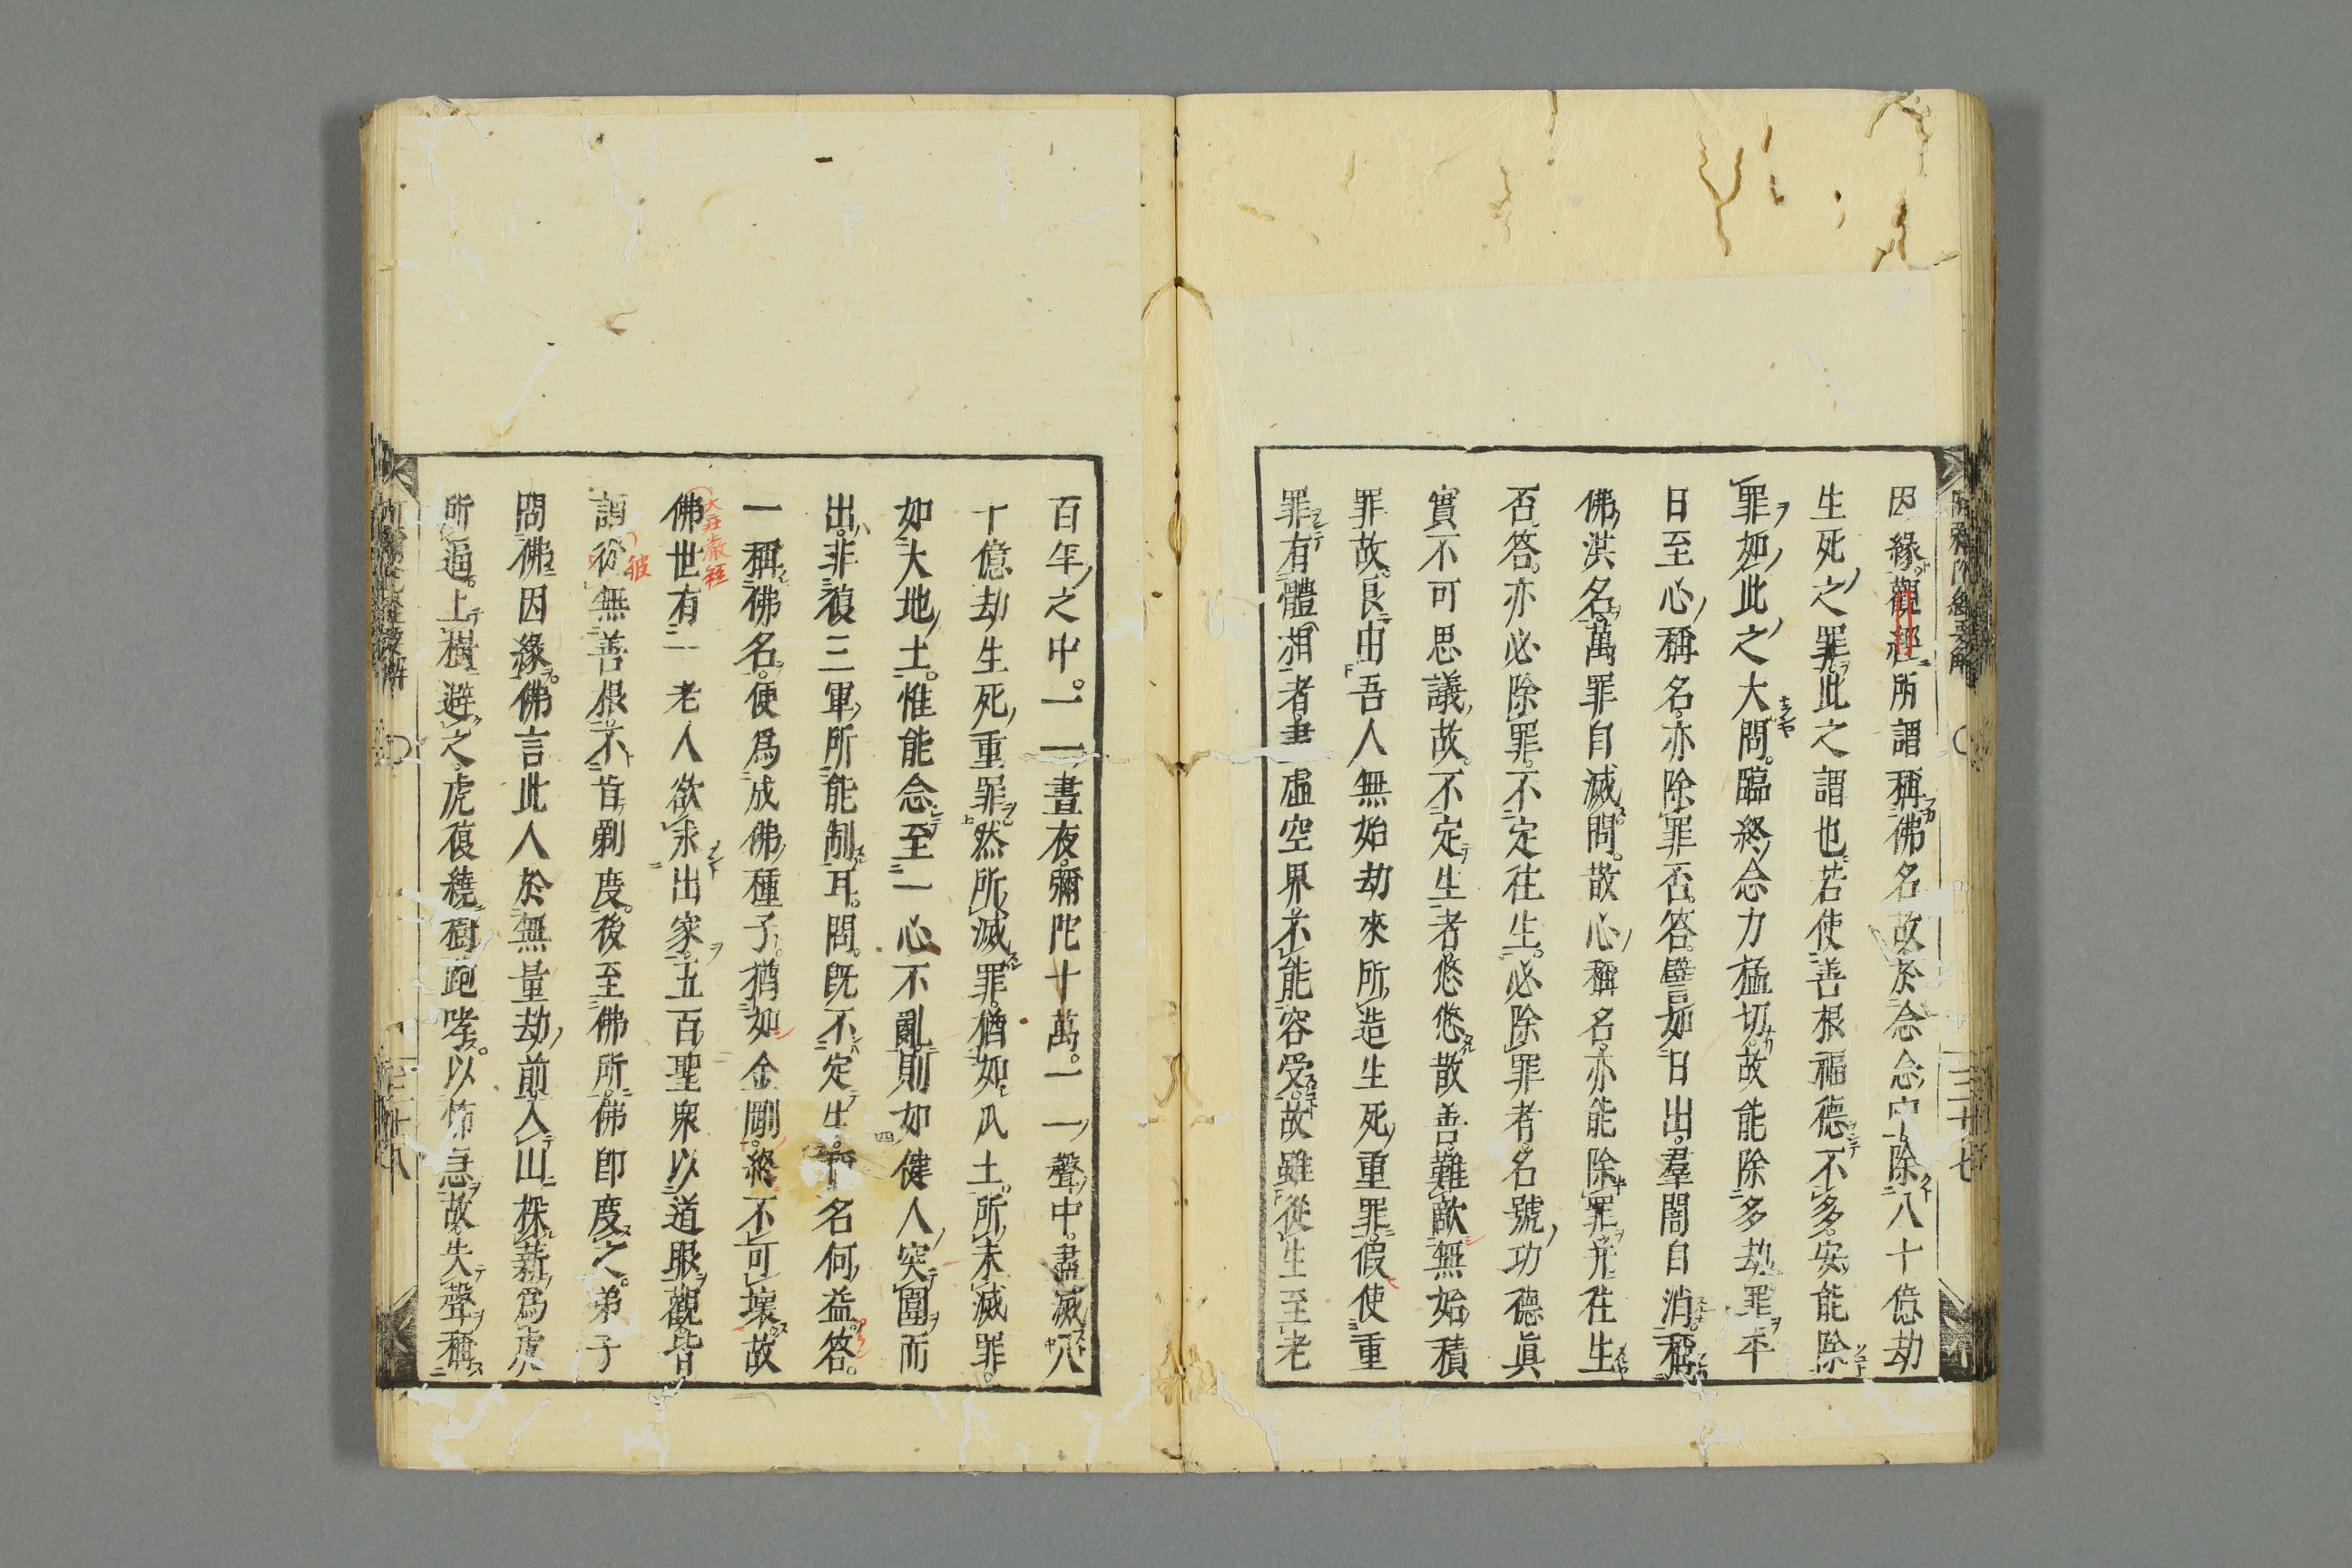 因緣觀經所謂稱佛名故於念念中除八十億劫
生死之罪此之謂也若使善根福德不多安能除
罪如此之大問臨終念力猛切故能除多劫罪平
日至心稱名亦除罪否答譬如日出羣闇自消稱
佛洪名萬罪自滅問散心稱名亦能除罪先徃生
否答亦必除罪不定徃生必除罪者名號功德眞
實不可思議故不定生者悠悠散善難敵無始積
罪故良由吾人無始劫來所造生死重罪假使重
罪有體相者盡虛空界不能容受故雖從生至老
百年之中一一晝夜彌陀十萬一一聲中盡滅八
十億劫生死重罪然所滅罪猶如爪土所未滅罪
如大地土惟能念至一心不亂則如健人突圍而
出非復三軍所能制耳問旣不定生稱名何益答
一稱佛名便爲成佛種子猶如金剛終不可壞故
佛世有一老人欲求出家五百聖衆以道眼觀皆
大莊嚴經
謂從無善根不肯剃度後至佛所佛卽度之弟子
彼
問佛因緣佛言此人於無量劫前入山採薪爲虎
所逼上樹避之虎復繞樹跑哮以怖急故失聲稱
三十七
三十八